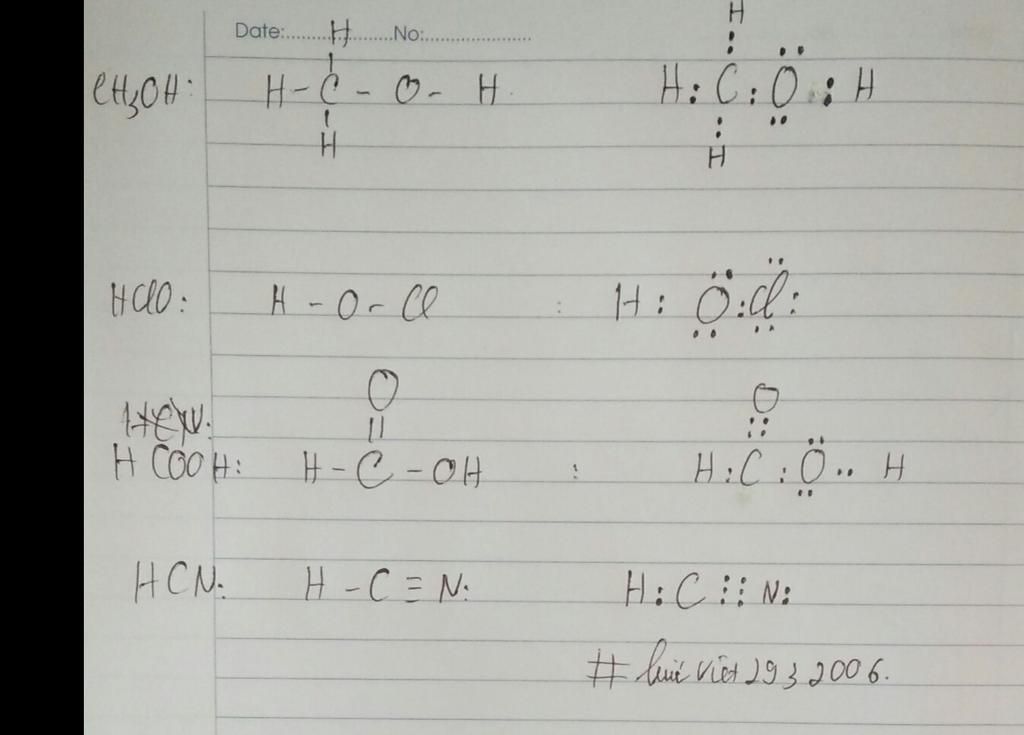 Date:........H........No:....................
CH3OH: H - C - O - H H : C : O : H
H H
HClO: H - O - Cl : H : O : Cl :
O O
||
HCOOH: H - C - OH : H : C : O : H
HCN: H - C ≡ N: H : C ⋮⋮ N:
29 3 2006.